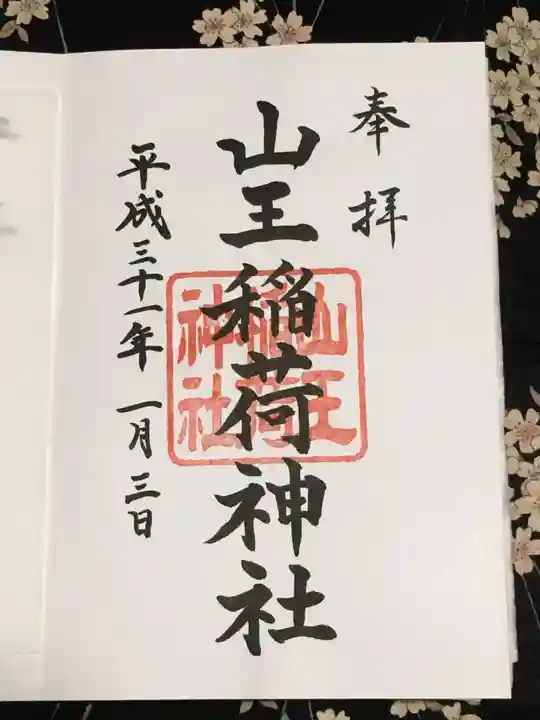 奉拝
山王稲荷神社
山王
稲荷
神社
平成三十一年一月三日